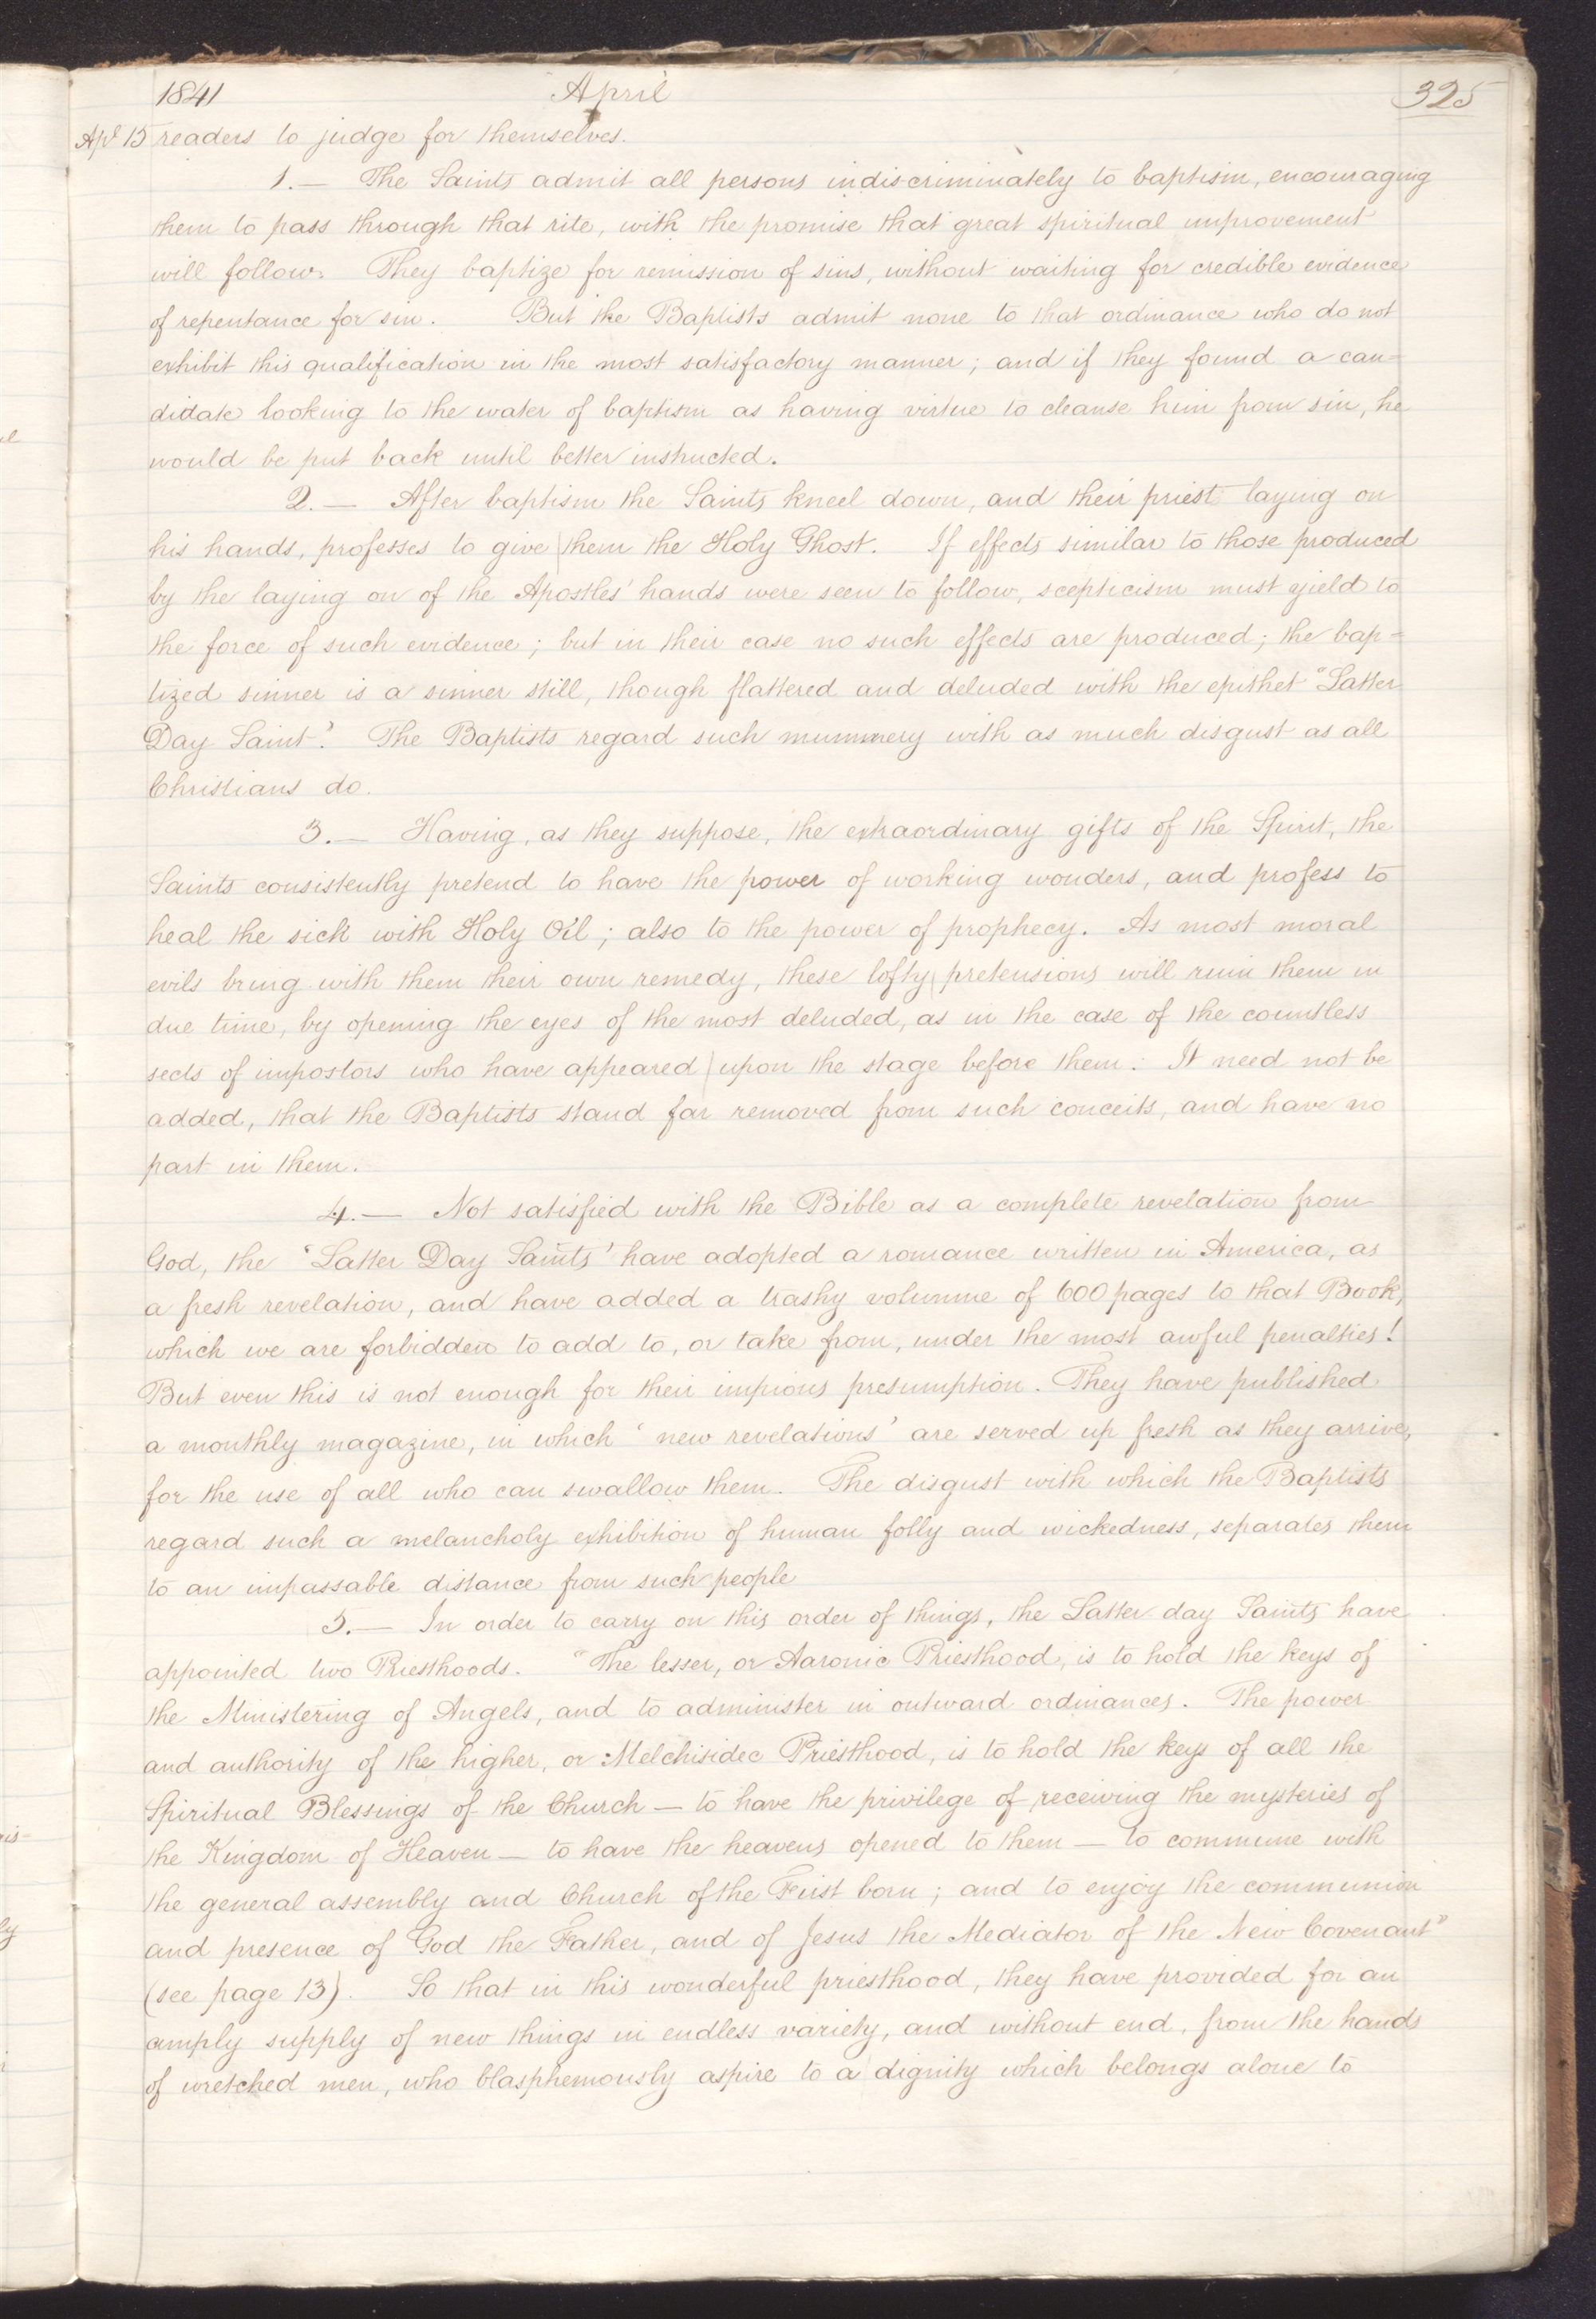 1841 April 325
Apl 15 readers to judge for themselves.
1.— The Saints admit all persons indiscriminately to baptism, encouraging
them to pass through that rite, with the promise that great spiritual improvement
will follow. They baptize for remission of sins, without waiting for credible evidence
of repentance for sin. But the Baptists admit none to that ordinance who do not
exhibit this qualification in the most satisfactory manner; and if they found a can=
didate looking to the water of baptism as having virtue to cleanse him from sin, he
would be put back until better instructed.
2.— After baptism the Saints kneel down, and their priest laying on
his hands, professes to give them the Holy Ghost. If effects similar to those produced
by the laying on of the Apostles' hands were seen to follow, scepticism must yield to
the force of such evidence; but in their case no such effects are produced; the bap=
tized sinner is a sinner still, though flattered and deluded with the epithet "Latter
Day Saint'. The Baptists regard such mummery with as much disgust as all
Christians do.
3.— Having, as they suppose, the extraordinary gifts of the Spirit, the
Saints consistently pretend to have the power of working wonders, and profess to
heal the sick with Holy Oil; also to the power of prophecy. As most moral
evils bring with them their own remedy, these lofty pretensions will ruin them in
due time, by opening the eyes of the most deluded, as in the case of the countless
sects of impostors who have appeared upon the stage before them. It need not be
added, that the Baptists stand far removed from such conceits, and have no
part in them.
4.— Not satisfied with the Bible as a complete revelation from
God, the 'Latter Day Saints' have adopted a romance written in America, as
a fresh revelation, and have added a trashy volumne of 600 pages to that Book,
which we are forbidden to add to, or take from, under the most awful penalties!
But even this is not enough for their impious presumption. They have published
a monthly magazine, in which 'new revelations' are served up fresh as they arrive,
for the use of all who can swallow them. The disgust with which the Baptists
regard such a melancholy exhibition of human folly and wickedness, separates them
to an impassable distance from such people
5.— In order to carry on this order of things, the Latter day Saints have
appointed two Priesthoods. "The lesser, or Aaronic Priesthood, is to hold the keys of
the Ministering of Angels, and to administer in outward ordinances. The power
and authority of the higher, or Melchisidec Priesthood, is to hold the keys of all the
Spiritual Blessings of the Church — to have the privilege of receiving the mysteries of
the Kingdom of Heaven — to have the heavens opened to them — to commune with
the general assembly and Church of the First born; and to enjoy the communion
and presence of God the Father, and of Jesus the Mediator of the New Covenant"
(see page 13). So that in this wonderful priesthood, they have provided for an
amply supply of new things in endless variety, and without end, from the hands
of wretched men, who blasphemously aspire to a dignity which belongs alone to